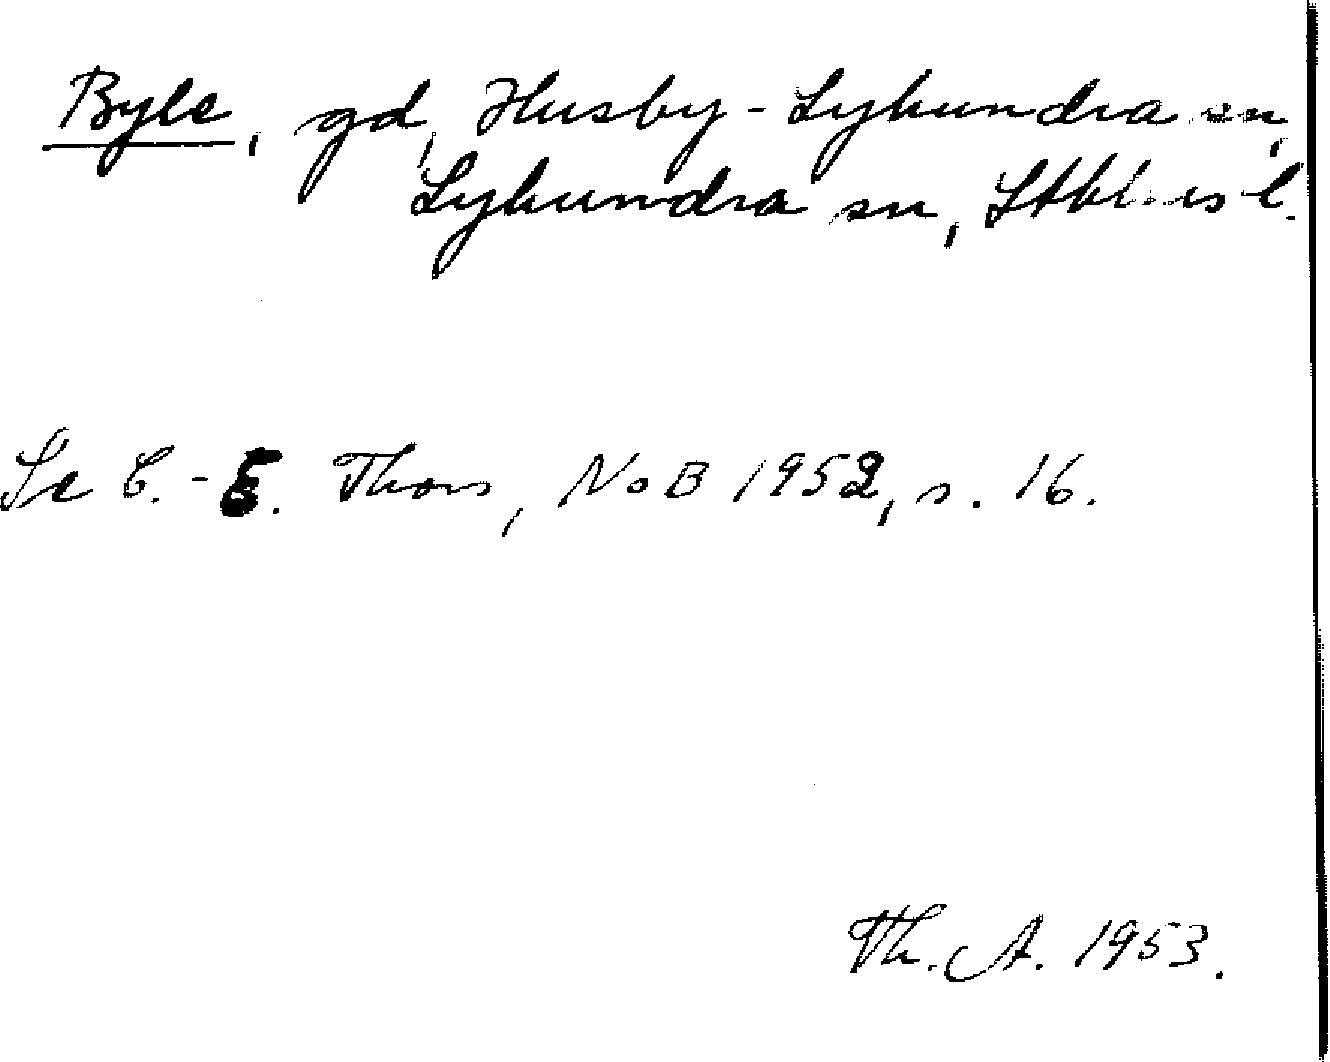 Byle, gd, Husby-Lyhundra sn,
Lyhundra sn, Sthlms l.
Se C.-E. Thors, NoB 1952, s. 16.
Th. A. 1953.